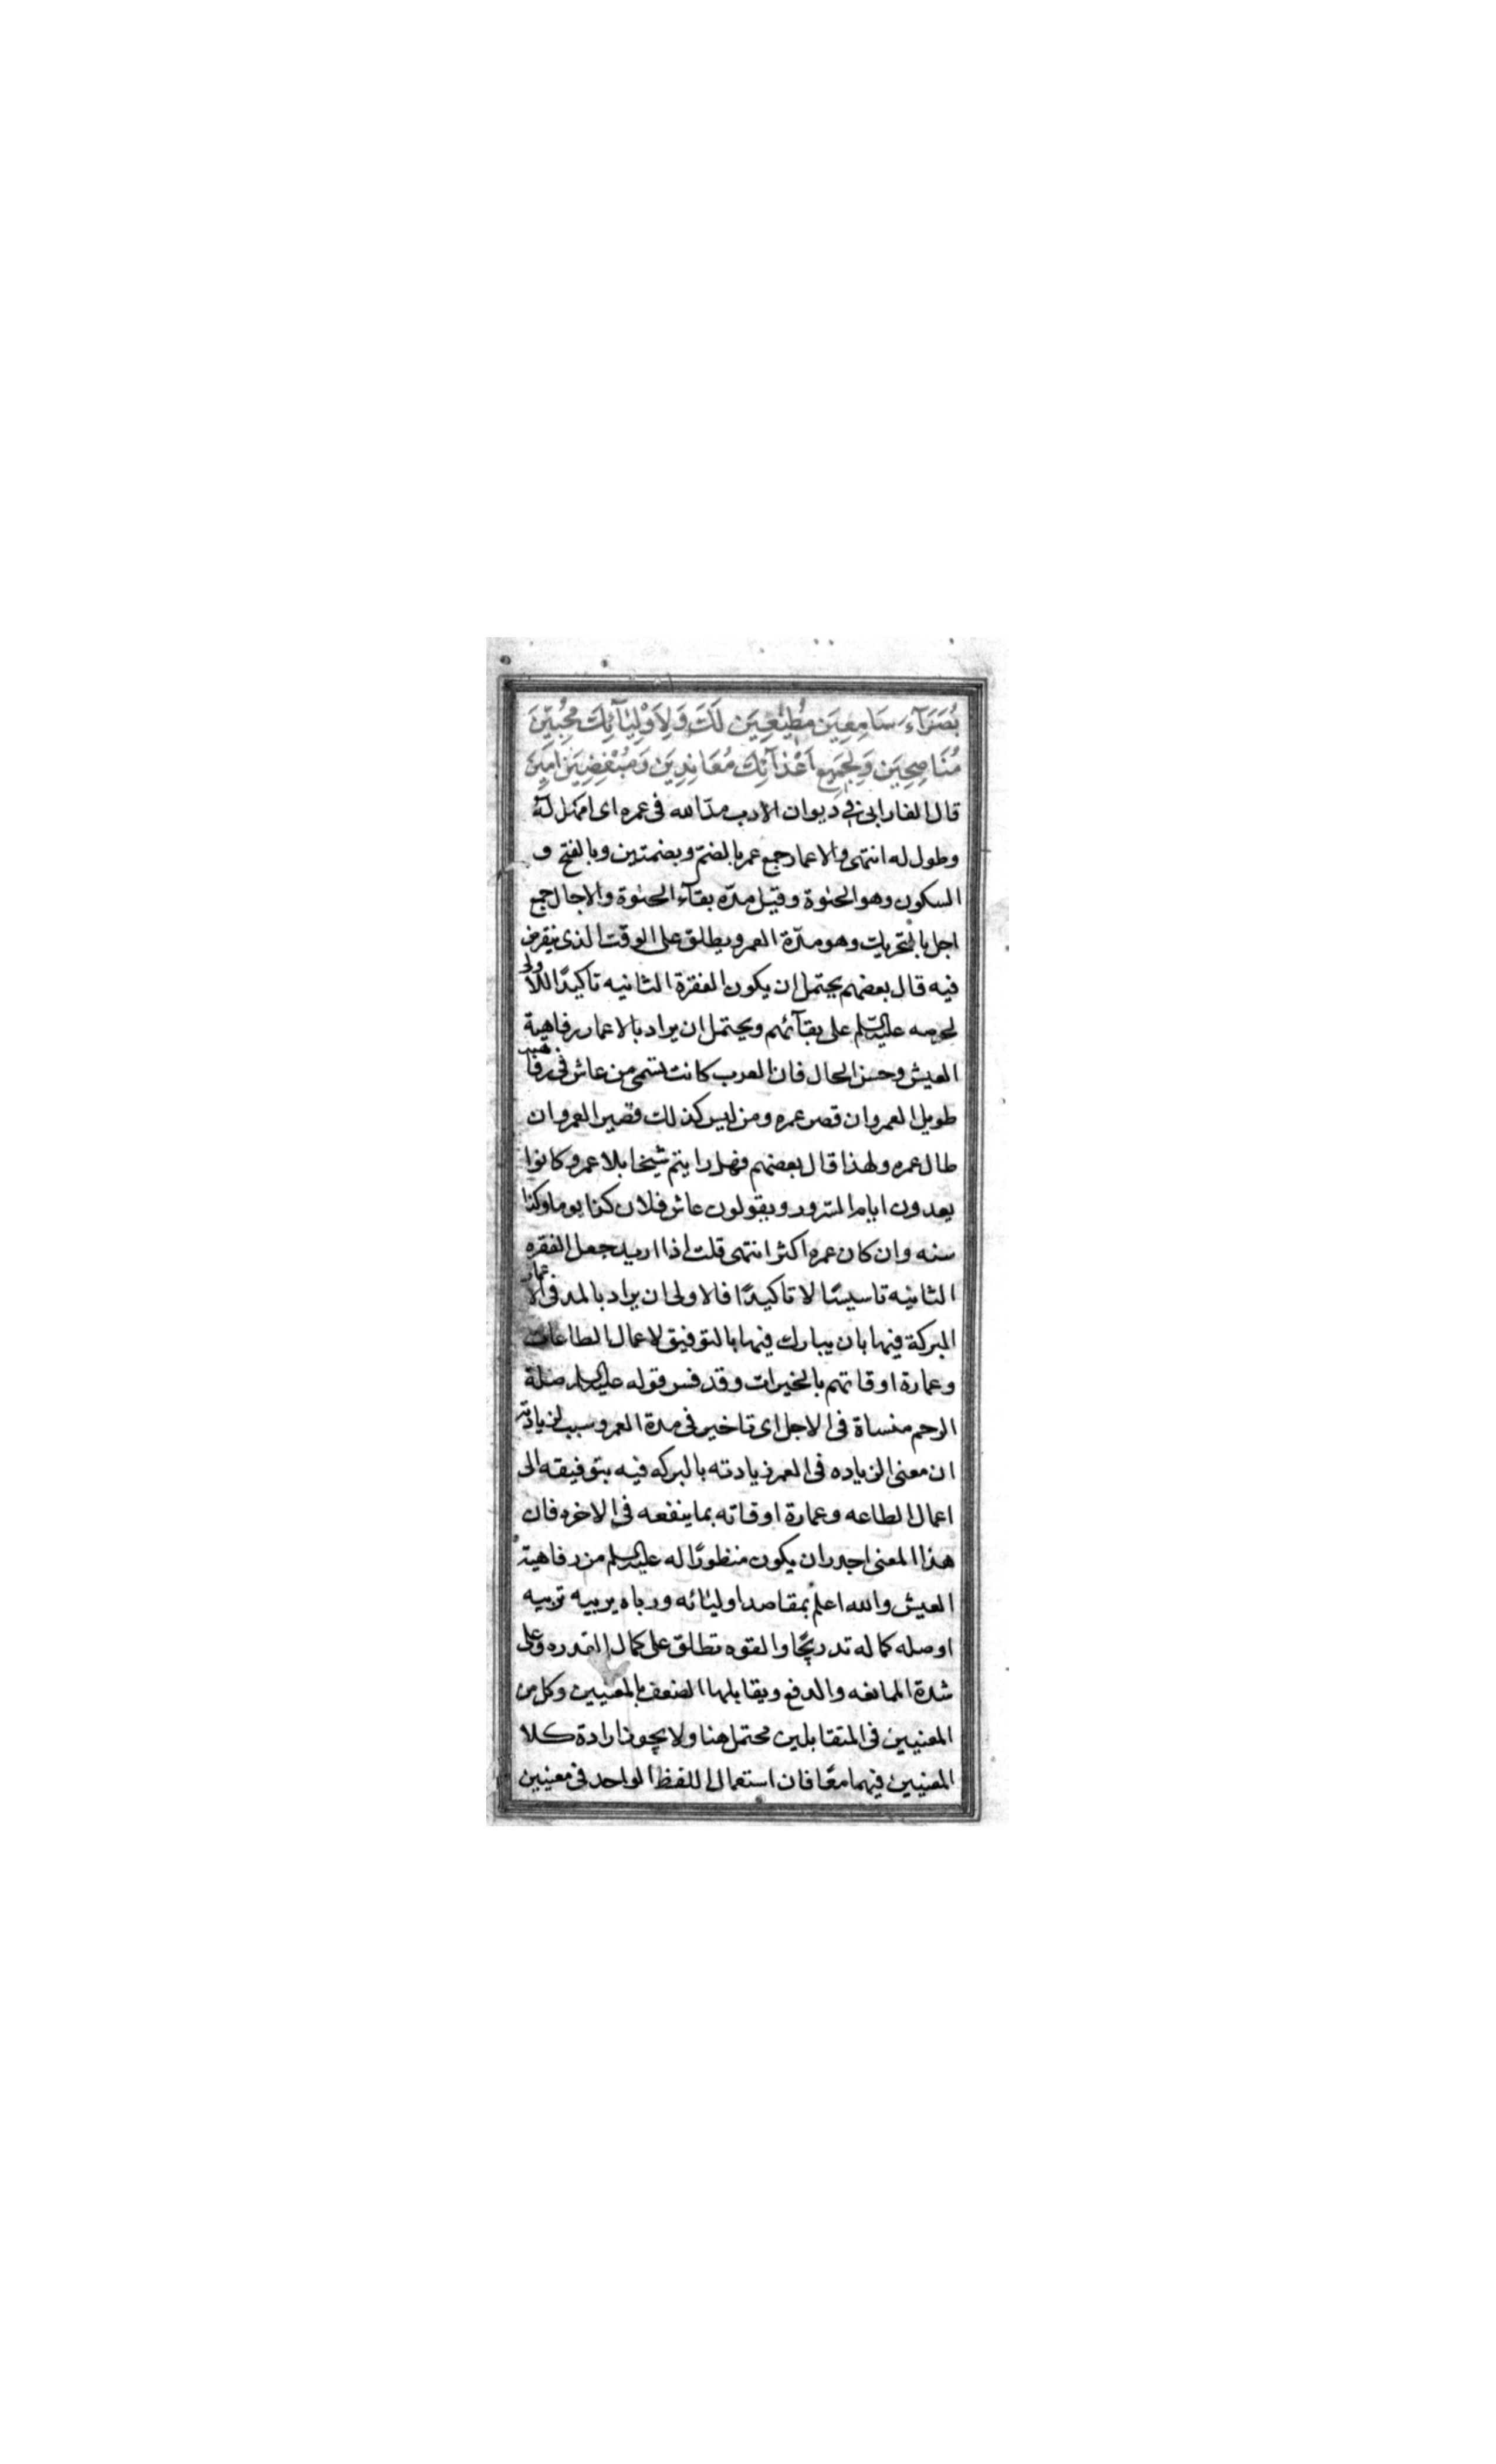 بُصَرَآءَ سَامِعِيَن مُطِيْعِيَن لَكَ وَلِاَوْلِيٰآئِكَ مُحِبِّيْنَ
مُنَاصِحِيَن وَلِجَمِيْعِ اَعْدٰآئِكَ مُعَانِدِيَن وَمُبْغِضِيَن اٰمِيَن
قال الفارابى فى ديوان الادب مدّ الله فى عمره اى امهل له
وطول له انتهى والاعمار جمع عمر بالضمّ وبضمتين وبالفتح و
السكون وهو الحيٰوة وقيل مدّه بقآء الحيٰوة والاجال جمع
اجل بالتحريك وهو مدّة العمر ويطلق على الوقت الذى ينقرض
فيه قال بعضهم يحتمل ان يكون الفقرة الثانيه تاكيدًا للاولى
لحرصه عليه السّلم على بقآئهم ويحتمل ان يراد بالاعمار رفاهية
العيش وحسن الحال فان العرب كانت تسمى من عاش فى رفاهيته
طويل العمر وان قصر عمره ومن ليس كذلك قصير العمر وان
طال عمره ولهذا قال بعضهم فهل رايتم شيخا بلا عمر وكانوا
يعدون ايام السّرور ويقولون عاش فلان كذا يوما وكذا
سنه وان كان عمره اكثر انتهى قلت اذا اريد جعل الفقره
الثانيه تاسيسًا لا تاكيدًا فالاولى ان يراد بالمد فى الاعمار
البركة فيها بان يبارك فيها بالتوفيق لاعمال الطاعات
وعمارة اوقاتهم بالخيرات وقد فسر قوله عليه السلم صلة
الرحم منساة فى الاجل اى تاخير فى مدة العمر وسبب لزيادته
ان معنى الزياده فى العمر زيادته بالبركه فيه بتوفيقه الى
اعمال الطاعه وعمارة اوقاته بما ينفعه فى الاخره فان
هذا المعنى اجدر ان يكون منظورًا له عليه السلم من رفاهية
العيش والله اعلم بمقاصد اوليٰائه ورباه يربيه تربيه
اوصله كماله تدريجًا والقوه تطلق على كمال القدره وعلى
شدة الممانعه والدفع ويقابلها الضعف بالمعنيين وكل من
المعنيين فى المتقابلين محتمل هنا ولا يجوز ارادة كلا
المعنيين فيهما معًا فان استعمال اللفظ الواحد فى معنيين